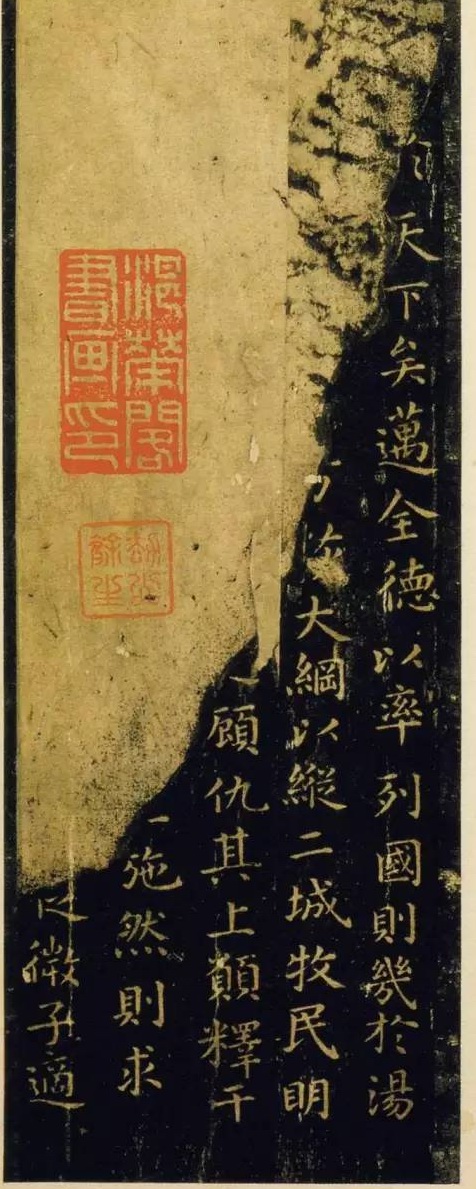 於天下矣邁全德以率列國則幾於湯
大綱以縱二城牧民明
顧仇其上願釋干
施然則求
微子適
閣
書畫印
餘生